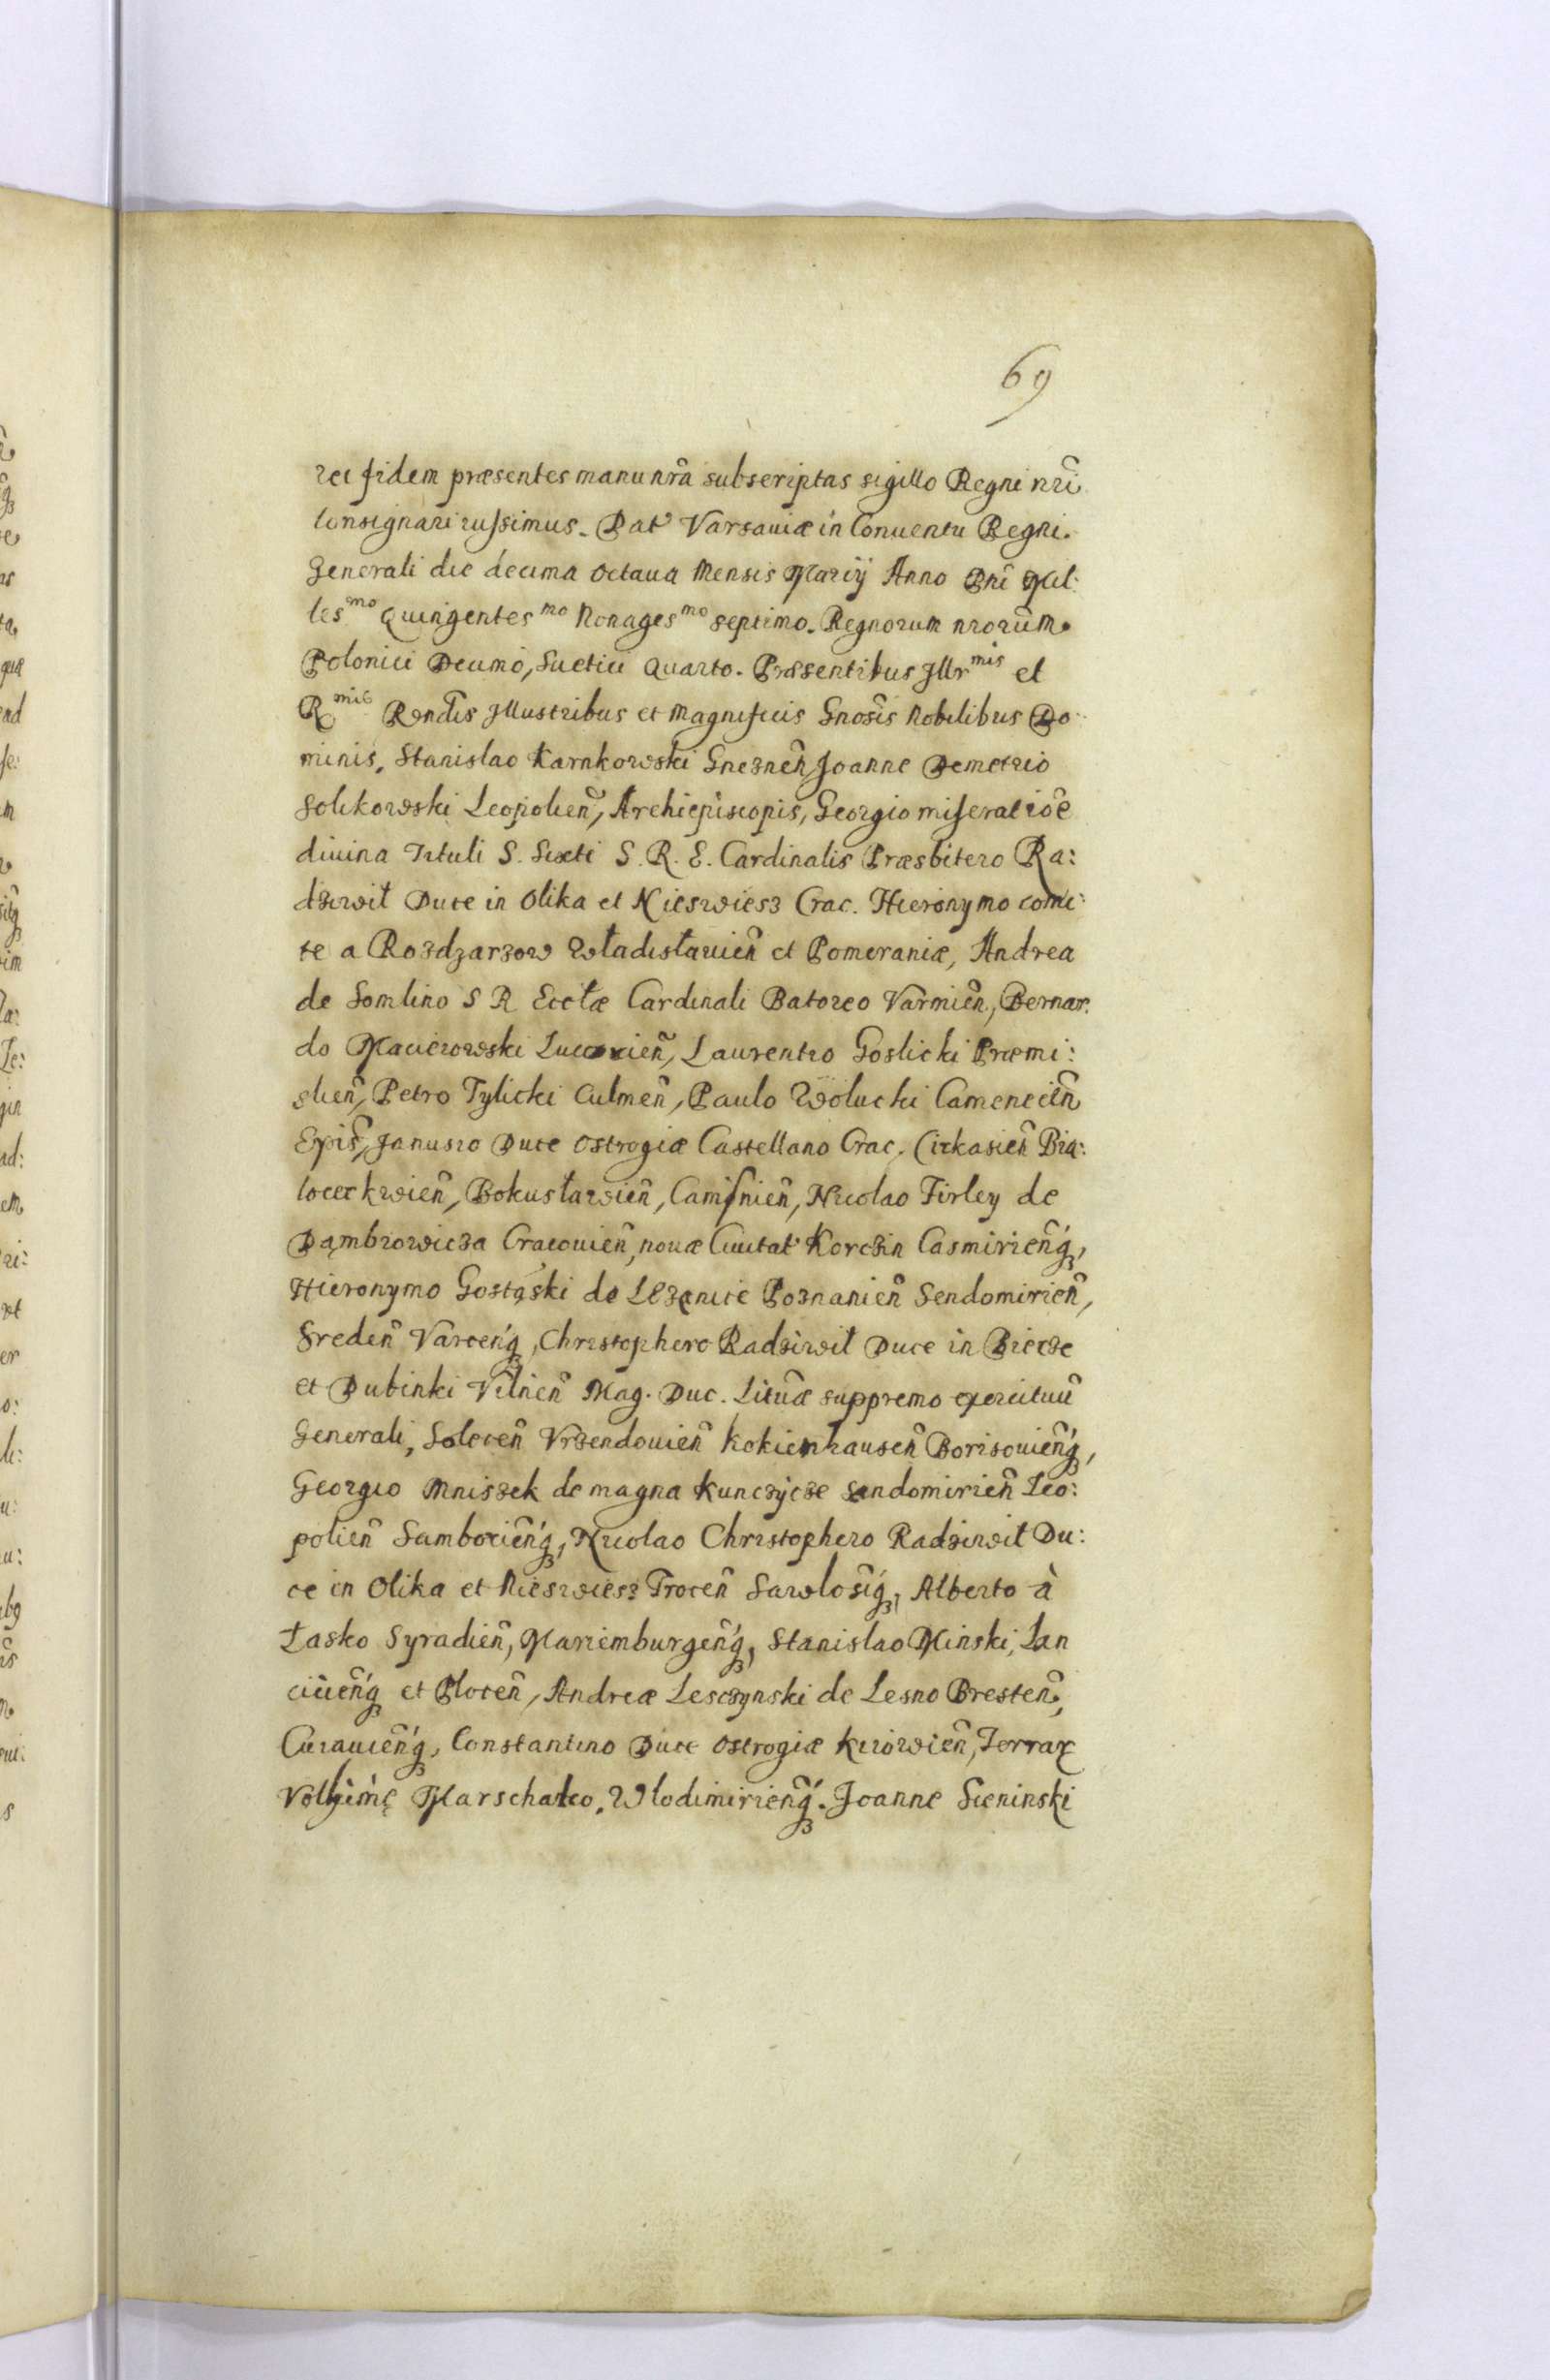 69
rei fidem præsentes manu nr̃a subscriptas sigillo Regni nr̃i
consignari iussimus. Dat Varsaviæ in Conuentu Regni
Generali die decima octaua Mensis Marcÿ Anno Dnĩ Mil:
les^mo Quingentes^mo Nonages^mo septimo. Regnorum nrorũm
Polonici Decimo, Suetici quarto. Præsentibus Illr^mis et
R^mis Rẽndis Illustribus et Magnificis Gnosis̃ Nobilibus Do:
minis, Stanislao Karnkowski Gneznẽn Joanne Demetrio
Solikowski Leopolieñ, Archiepiscopis, Georgio miseratioẽ
diuina Tituli S. Sixti S. R. E. Cardinalis Præsbitero Ra:
dziwił Duce in Olika et Nieswiesz Crac. Hieronymo comi:
te a Rozdzarzow Władisławieñ et Pomeraniæ, Andrea
de Somlino S R Eccłæ Cardinali Batoreo Varmieñ, Bernar:
do Macieiowski Luceorieñ, Laurentio Goslicki Præmi:
slieñ, Petro Tylicki Culmeñ, Paulo Wolucki Camenecieñ
Epis̃, Janusio Duce Ostrogiæ Castellano Crac. Cirkasieñ Bia:
locerkwieñ, Bohusławieñ, Camĩnieñ, Nicolao Firley de
Dąmbrowicza Cracouieñ, nouæ Ciuitat Korczin Casmirieñq́,
Hieronymo Gostąski de Lezenice Poznanieñ Sendomirieñ,
Sredeñ Varceñq́, Christophero Radziwił Duce in Bierze
et Dubinki Vilnieñ Mag. Duc. Lituæ̃ suppremo exercituũ
Generali, Soleceñ Vrzendouieñ Kokienhauseñ Borisouieñq́,
Georgio Mniszek de magna Kunczÿcze Sendomirieñ Leo:
polieñ Samborieñq́, Nicolao Christophero Radziwił Du:
ce in Olika et Nieswiesz Troceñ Sawlosĩq́, Alberto à
Łasko Syradieñ, Mariemburgeñq́, Stanislao Minski, Lan
ciciieñq́ et Ploceñ, Andreæ Lesczynski de Lesno Bresteñ,
Cuiauieñq́, Constantino Duce Ostrogiæ Kiiowieñ, Terrar
Volhinię Marschałco, Wlodimirieñq́. Joanne Sieninski